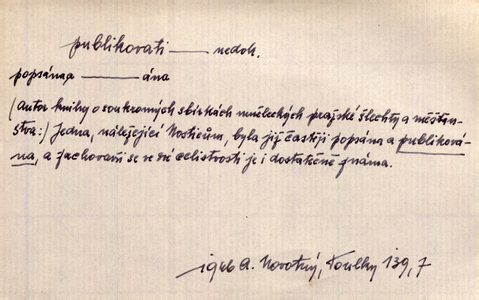 publikovati —— nedok.
popsána —— ána
(Autor knihy o soukromých sbírkách uměleckých pražské šlechty a měšťan-
stva:) Jedna, náležející Nosticům, byla již častěji popsána a publiková-
na, a zachovavši se ve své celistvosti je i dostatečně známa.
1946 A. Novotný, Toulky 139, 7